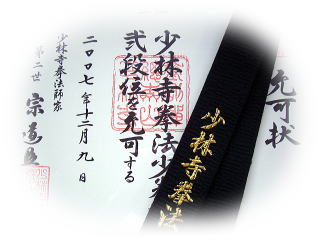 允可状
少林寺拳法少
弐段位を允可する
二〇〇七年十二月九日
少林寺拳法師家
第二世 宗道臣
少林寺拳法